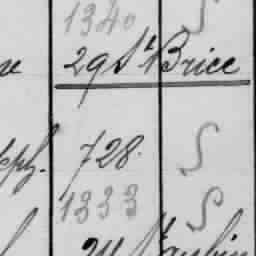 1340 S
29 St Brice
728. S
1333 S
24 St Aubin